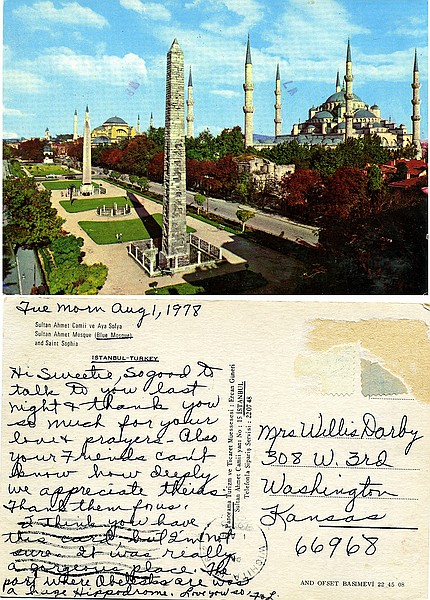 Tue Morn Aug 1, 1978
Sultan Ahmet Camii ve Aya Sofya
Sultan Ahmet Mosque (Blue Mosque),
and Saint Sophia
ISTANBUL-TURKEY
Hi Sweetie, So good to
talk to you last
night & thank you
so much for your
love & prayers - Also
your friends can't
know how deeply
we appreciate theirs.
Thank them for us.
I think you have
this card but I'm not
sure. It was really
a gorgeous place. The
part where Obelisks are was
a huge Hippodrome. Love you so,
Panorama Turizm ve Ticaret Müessesesi : Ercan Güneri
Sultan Ahmet Camii yanı No : 17 İSTANBUL
Telefonla Sipariş Servisi : 220748
Mrs Willis Darby
308 W. 3rd
Washington
Kansas
66968
AND OFSET BASIMEVİ 22 45 08